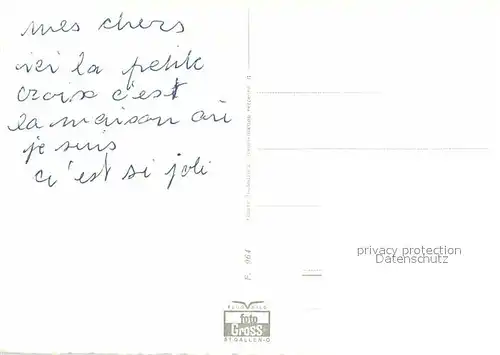 mes chers
ici la petite
croix c'est
la maison où
je suis
c'est si joli
P. 964
privacy protection
Datenschutz
foto
Gross
ST.GALLEN-O